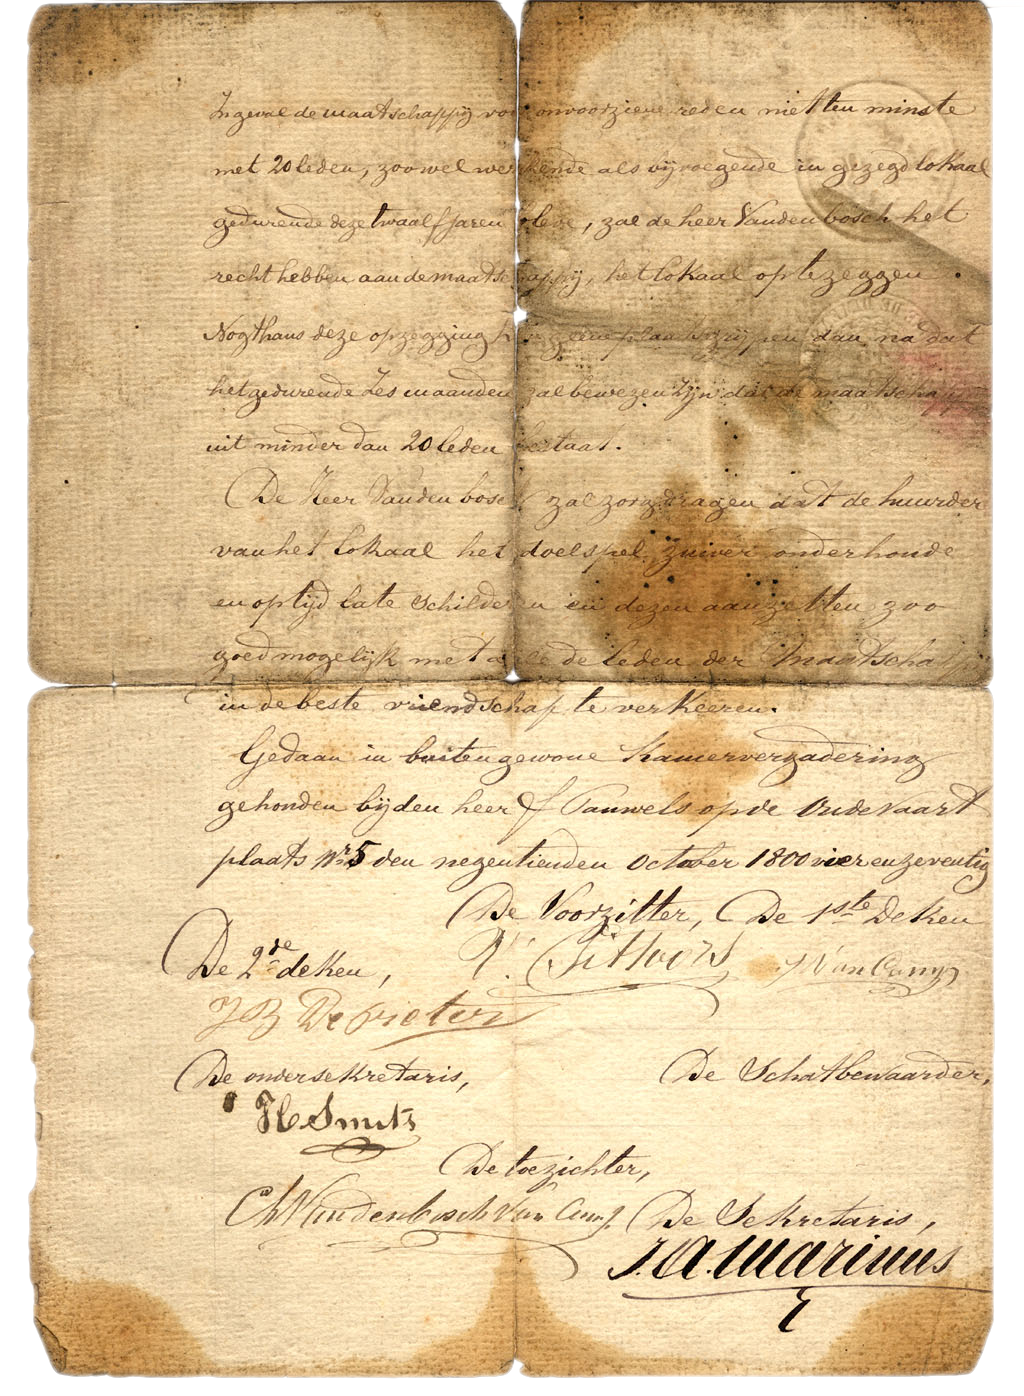 Ingeval de maatschappij voor onvoorziene reden niet ten minste
met 20 leden, zoowel werkende als bijvoegende in gezegd lokaal
gedurende deze twaalf jaren bleve, zal de heer Vandenbosch het
recht hebben aan de maatschappij, het lokaal op te zeggen.
Nogthans deze opzegging geene plaats grijpen dan na dat
het gedurende Zes maanden zal bewezen zijn dat de maatschappij
uit minder dan 20 leden bestaat.
De Heer Vandenbosch zal zorg dragen dat de huurder
van het lokaal het doelspel zuiver onderhoude
en op tijd late schilderen en dezen aanzetten zoo
goed mogelijk met alle de leden der Maatschappij
in de beste vriendschap te verkeeren.
Gedaan in buitengewone Kamervergadering
gehouden bij den heer F Pauwels op de Oudevaart
plaats Nr 5 den negentienden October 1800 vier en zeventig
De Voorzitter, De 1ste Deken
De 2de deken,
J Van Camp
J B De Pieter
De ondersekretaris, De Schatbewaarder,
H Smits
De toezichter,
Ch Vandenbosch Van Camp De Sekretaris,
J.A. Marinus